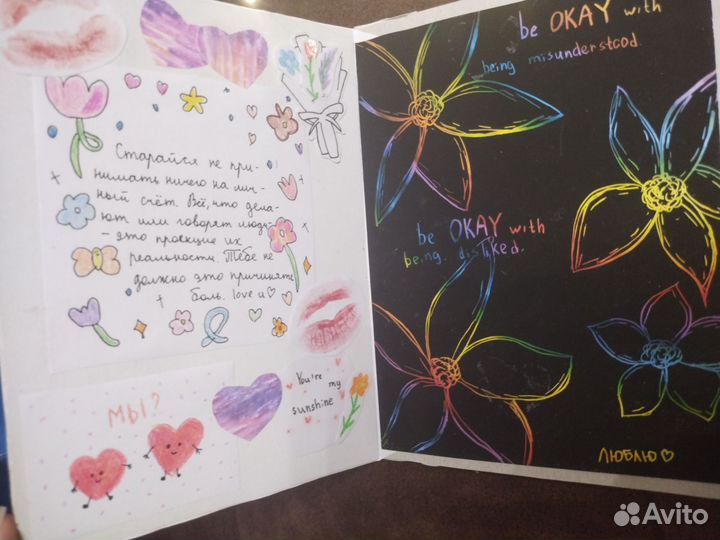 Старайся не при-
нимать ничего на лич-
ный счёт. Всё, что дела-
ют или говорят люди-
- это проекция их
реальности. Тебе не
должно это причинять
боль. love u
МЫ?
You're my
sunshine
be OKAY with
being misunderstood.
be OKAY with
being. disliked.
ЛЮБЛЮ
Avito